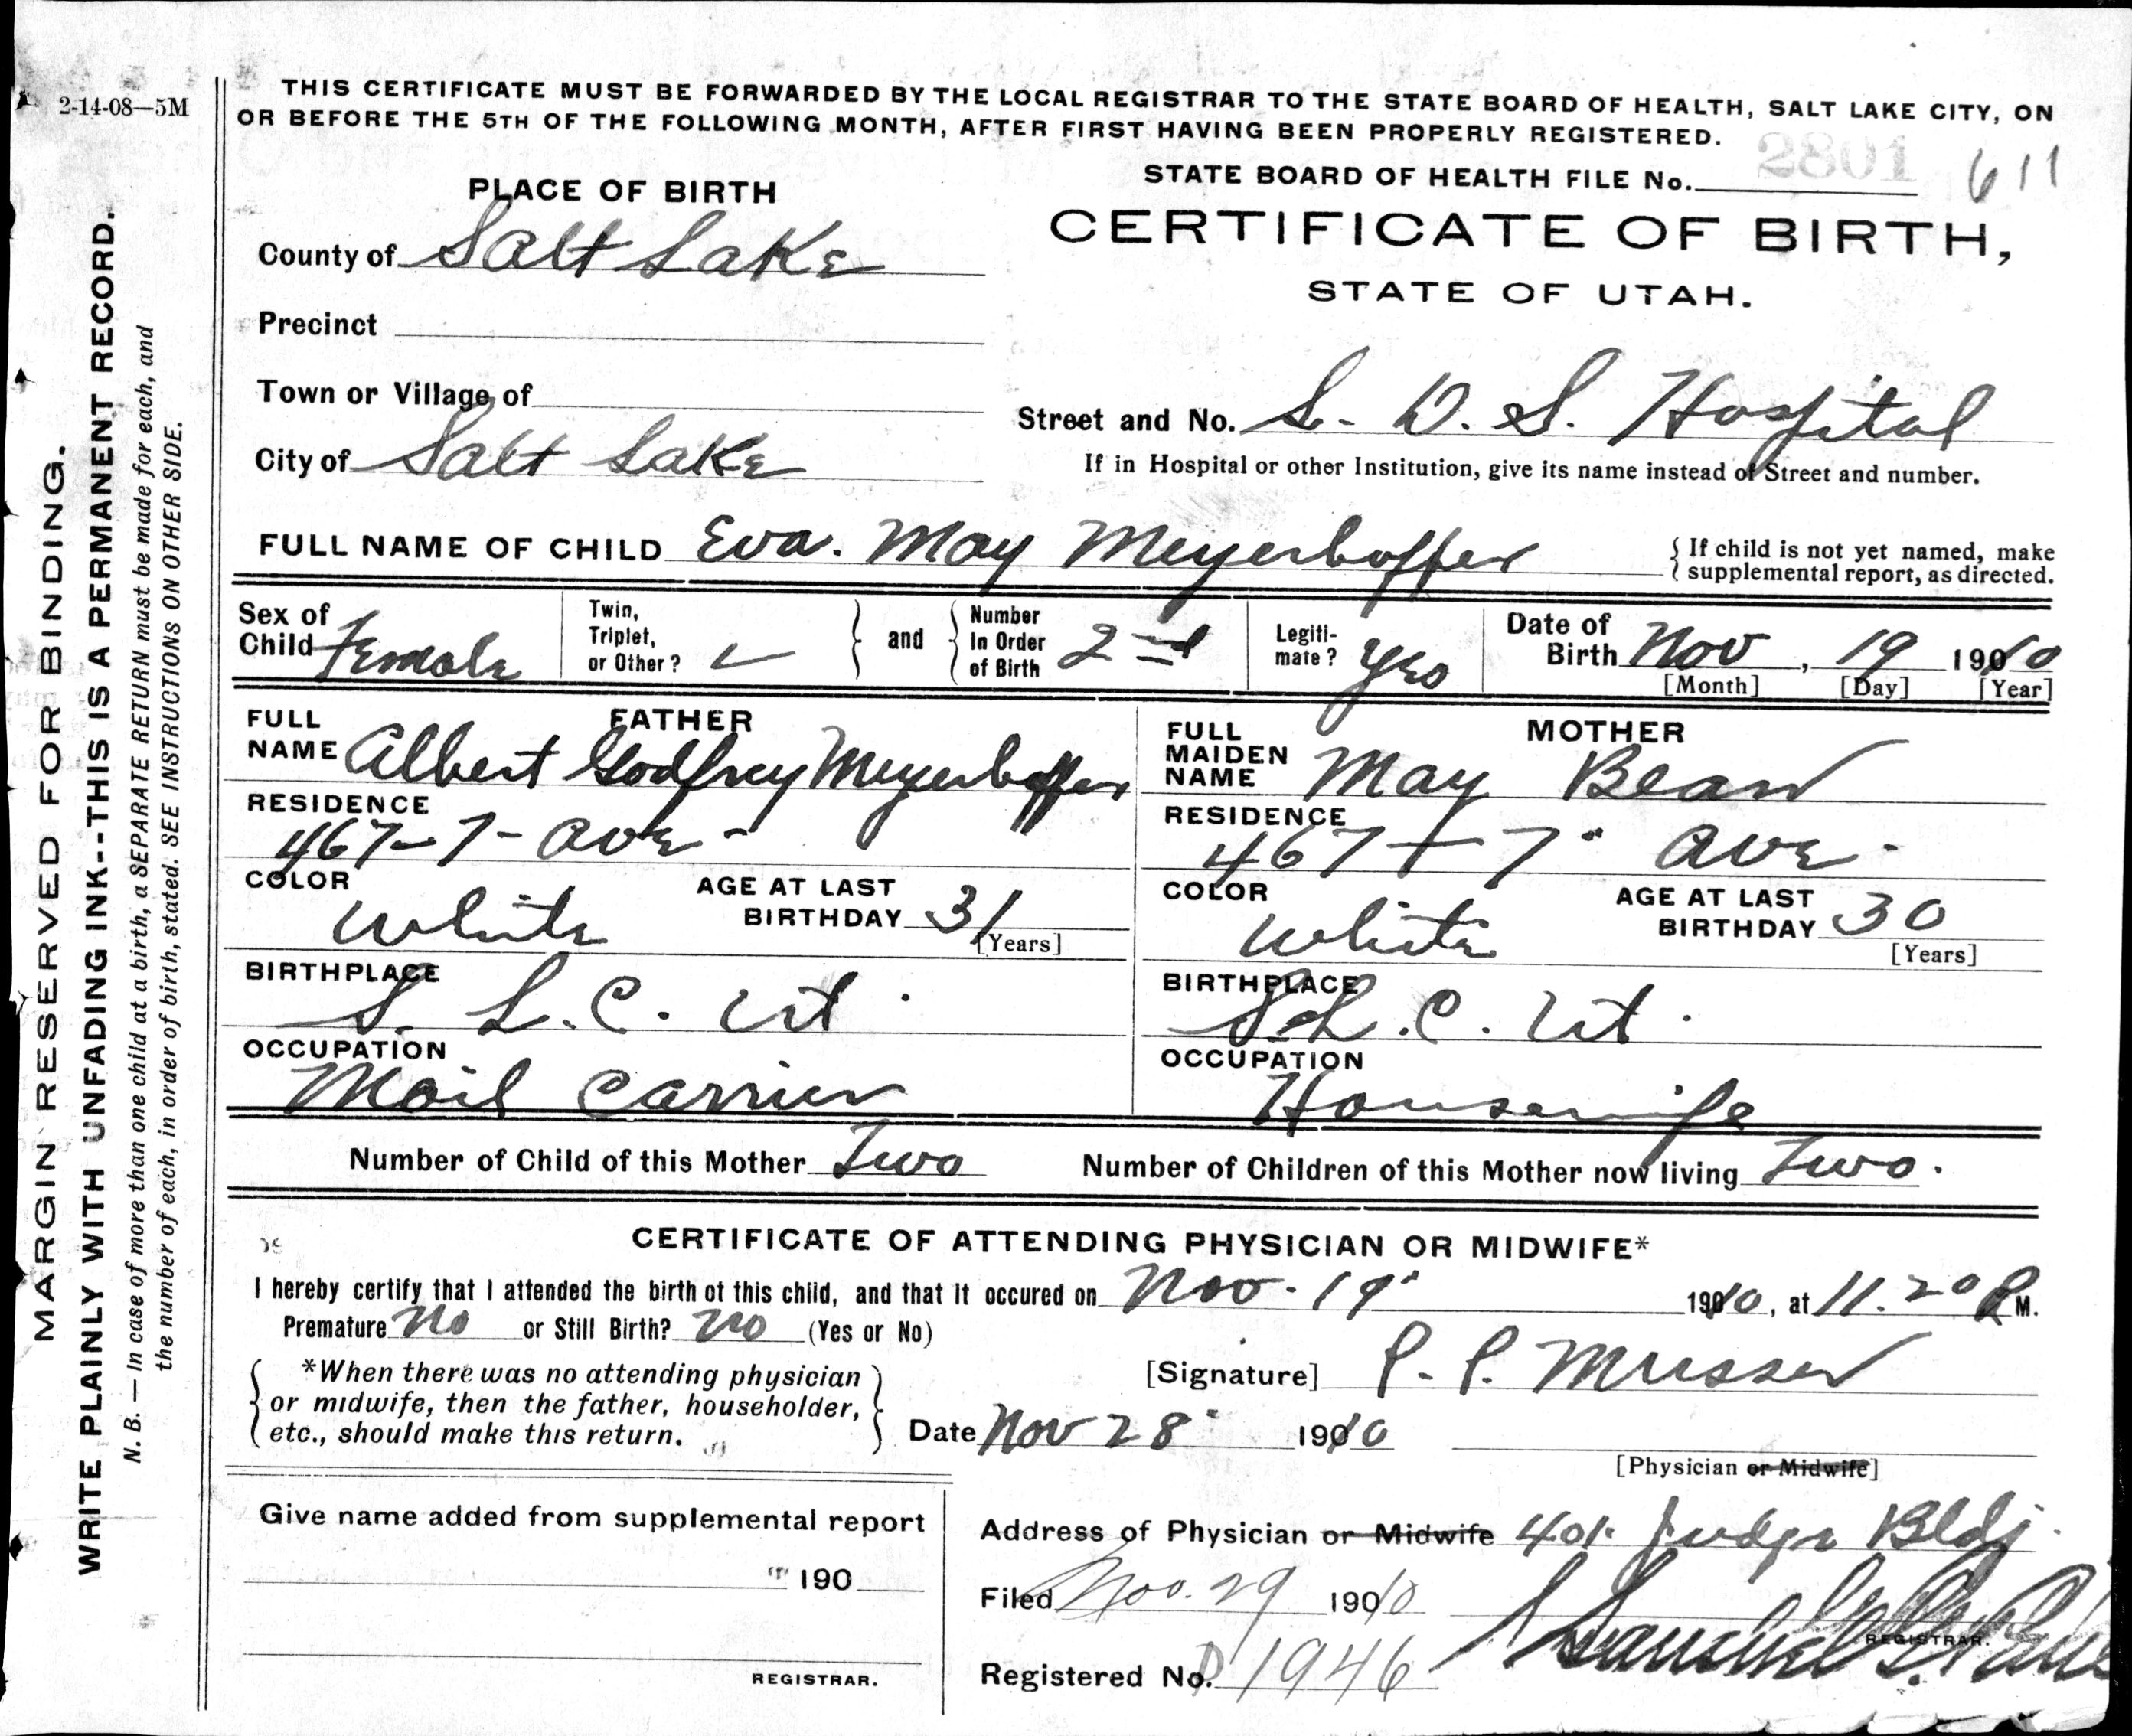 2-14-08—5M
THIS CERTIFICATE MUST BE FORWARDED BY THE LOCAL REGISTRAR TO THE STATE BOARD OF HEALTH, SALT LAKE CITY, ON
OR BEFORE THE 5TH OF THE FOLLOWING MONTH, AFTER FIRST HAVING BEEN PROPERLY REGISTERED.
STATE BOARD OF HEALTH FILE No. 2801 611
PLACE OF BIRTH
CERTIFICATE OF BIRTH,
STATE OF UTAH.
County of Salt Lake
Precinct
Town or Village of
City of Salt Lake
Street and No. L. D. S. Hospital
If in Hospital or other Institution, give its name instead of Street and number.
FULL NAME OF CHILD Eva. May Meyerhoffer
{ If child is not yet named, make
supplemental report, as directed.
Sex of
Child Female
Twin,
Triplet,
or Other?
and
Number
In Order
of Birth 2nd
Legiti-
mate? Yes
Date of
Birth Nov, 19 1910
[Month] [Day] [Year]
FATHER
FULL
NAME Albert Godfrey Meyerhoffer
RESIDENCE
467-7- Ave -
COLOR
White
AGE AT LAST
BIRTHDAY 31
[Years]
BIRTHPLACE
S. L. C. Ut.
OCCUPATION
Mail Carrier
MOTHER
FULL
MAIDEN
NAME May Bean
RESIDENCE
467 - 7" Ave.
COLOR
White
AGE AT LAST
BIRTHDAY 30
[Years]
BIRTHPLACE
S.L.C. Ut.
OCCUPATION
Housewife
Number of Child of this Mother Two
Number of Children of this Mother now living Two.
CERTIFICATE OF ATTENDING PHYSICIAN OR MIDWIFE*
I hereby certify that I attended the birth of this child, and that it occured on Nov. 19" 1910, at 11.20 P M.
Premature No or Still Birth? No (Yes or No)
*When there was no attending physician
or midwife, then the father, householder,
etc., should make this return.
[Signature] P. P. Musser
Date Nov 28" 1910
[Physician or Midwife]
Give name added from supplemental report
190
REGISTRAR.
Address of Physician or Midwife 401. Judge Bldg.
Filed Nov. 29 1910
REGISTRAR.
Registered No. P1946
MARGIN RESERVED FOR BINDING.
WRITE PLAINLY WITH UNFADING INK--THIS IS A PERMANENT RECORD.
N. B. — In case of more than one child at a birth, a SEPARATE RETURN must be made for each, and
the number of each, in order of birth, stated. SEE INSTRUCTIONS ON OTHER SIDE.